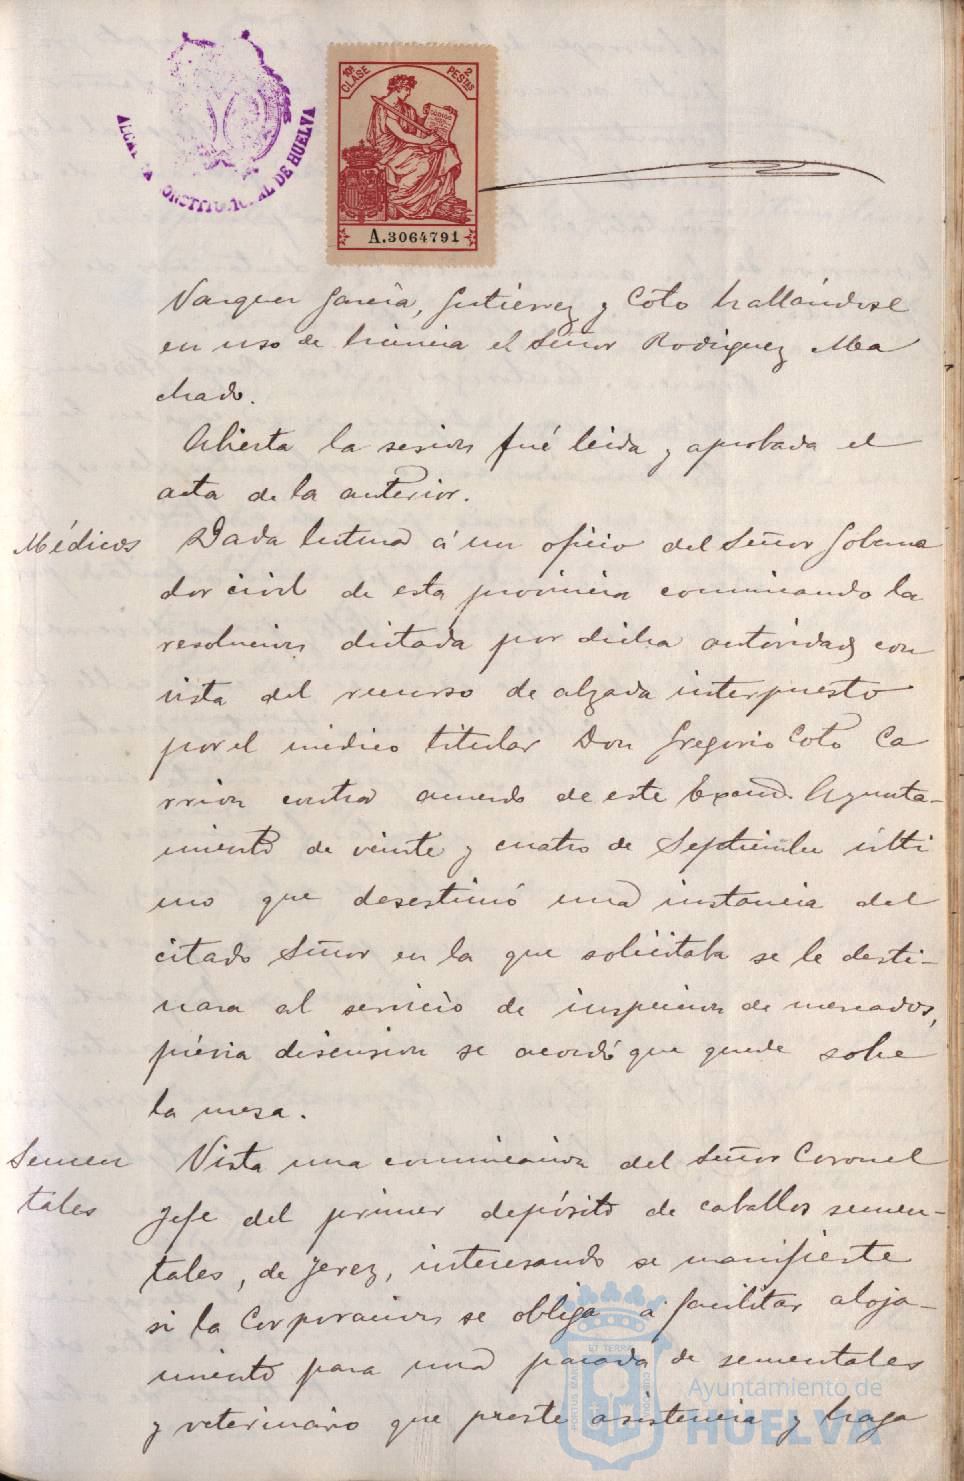 ALCALDIA CONSTITUCIONAL DE HUELVA
10ª CLASE
2 PESTAS
A.3064791
Vazquez García, Gutiérrez y Coto hallándose
en uso de licencia el Señor Rodriguez Ma
chado.
Abierta la sesion fué leida y aprobada el
acta de la anterior.
Médicos
Dada lectura á un oficio del Señor Goberna
dor civil de esta provincia comunicando la
resolucion dictada por dicha autoridad con
vista del recurso de alzada interpuesto
por el médico titular Don Gregorio Coto Ca
rrion contra acuerdo de este Excmo. Ayunta-
miento de veinte y cuatro de Septiembre últi
mo que desestimó una instancia del
citado Señor en la que solicitaba se le desti-
nara al servicio de inspeccion de mercados,
prévia discusion se acordó que quede sobre
la mesa.
Semen
tales
Vista una comunicacion del Señor Coronel
Jefe del primer depósito de caballos semen-
tales, de Jerez, interesando se manifieste
si la Corporacion se obliga á facilitar aloja-
miento para una parada de sementales
y veterinario que preste asistencia y haga
Ayuntamiento de
HUELVA